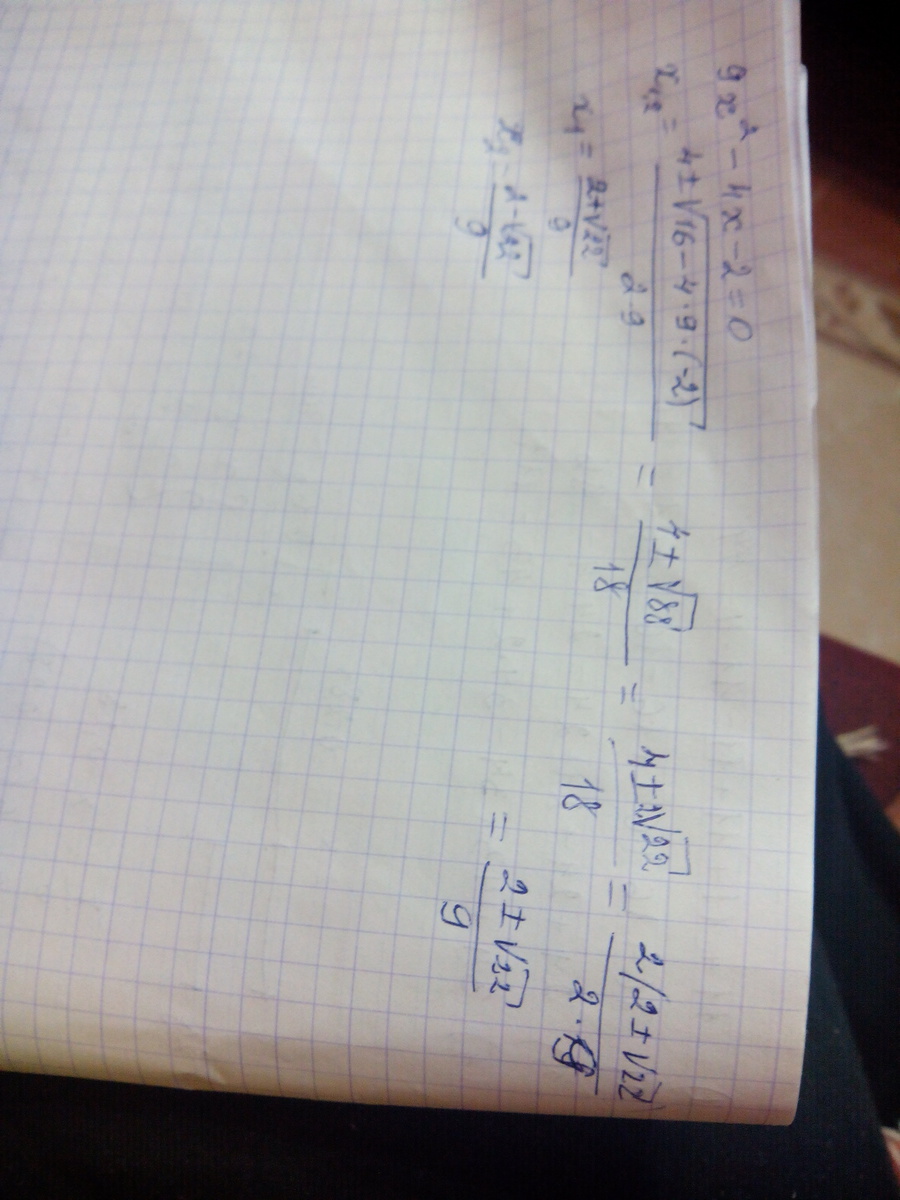 9x² - 4x - 2 = 0
x₁,₂ = (4 ± √(16 - 4·9·(-2))) / (2·9) = (4 ± √88) / 18 = (4 ± 2√22) / 18 = 2(2 ± √22) / (2·9)
= (2 ± √22) / 9
x₁ = (2 + √22) / 9
x₂ = (2 - √22) / 9